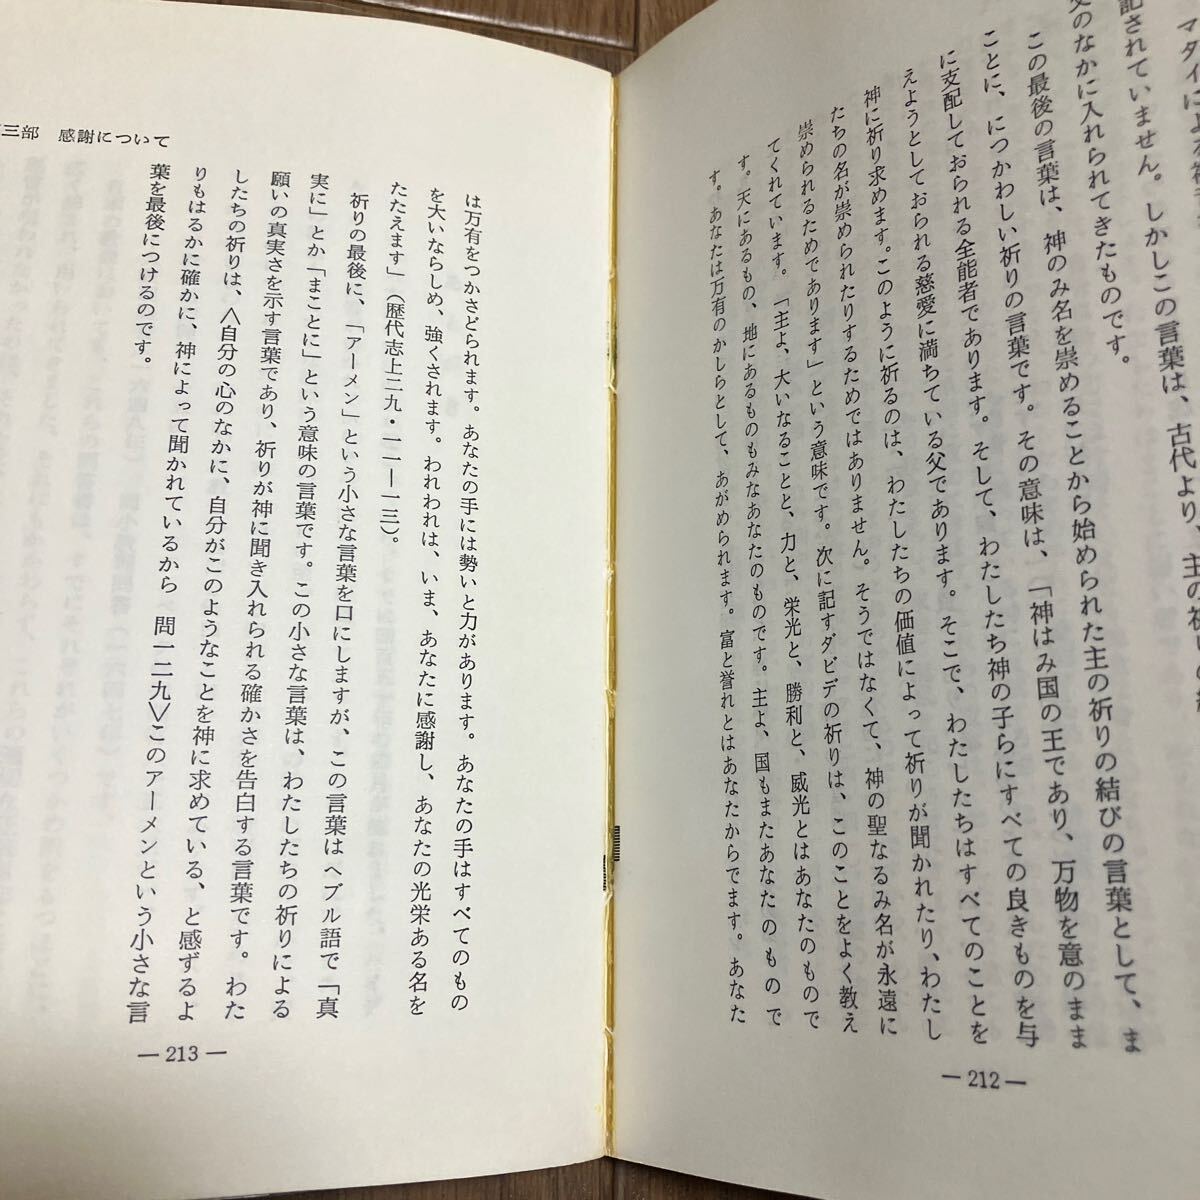 マタイによる
記されていません。しかしこの言葉は、古代より、主の祈りの
父のなかに入れられてきたものです。
この最後の言葉は、神のみ名を崇めることから始められた主の祈りの結びの言葉として、ま
ことに、につかわしい祈りの言葉です。その意味は、「神はみ国の王であり、万物を意のまま
に支配しておられる全能者であります。そして、わたしたち神の子らにすべての良きものを与
えようとしておられる慈愛に満ちている父であります。そこで、わたしたちはすべてのことを
神に祈り求めます。このように祈るのは、わたしたちの価値によって祈りが聞かれたり、わたし
たちの名が崇められたりするためではありません。そうではなくて、神の聖なるみ名が永遠に
崇められるためであります」という意味です。次に記すダビデの祈りは、このことをよく教え
てくれています。「主よ、大いなることと、力と、栄光と、勝利と、威光とはあなたのもので
す。天にあるもの、地にあるものもみなあなたのものです。主よ、国もまたあなたのもので
す。あなたは万有のかしらとして、あがめられます。富と誉れとはあなたからでます。あなた
— 212 —
三部 感謝について
は万有をつかさどられます。あなたの手には勢いと力があります。あなたの手はすべてのもの
を大いならしめ、強くされます。われわれは、いま、あなたに感謝し、あなたの光栄ある名を
たたえます」(歴代志上二九・一一—一三)。
祈りの最後に、「アーメン」という小さな言葉を口にしますが、この言葉はヘブル語で「真
実に」とか「まことに」という意味の言葉です。この小さな言葉は、わたしたちの祈りによる
願いの真実さを示す言葉であり、祈りが神に聞き入れられる確かさを告白する言葉です。わた
したちの祈りは、〈自分の心のなかに、自分がこのようなことを神に求めている、と感ずるよ
りもはるかに確かに、神によって聞かれているから 問一二九〉このアーメンという小さな言
葉を最後につけるのです。
— 213 —